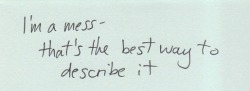 I'm a mess-
that's the best way to
describe it